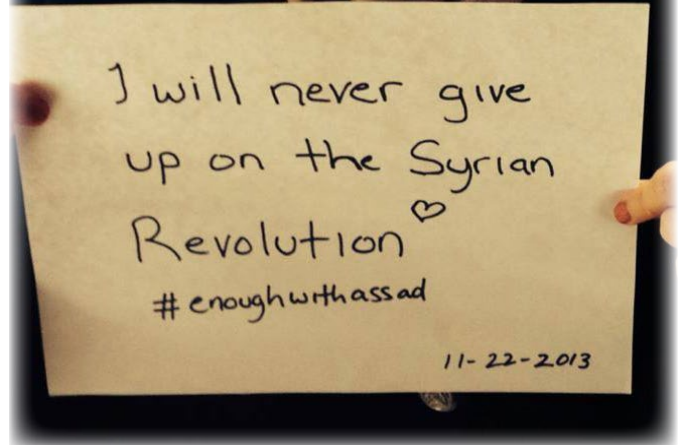 I will never give
up on the Syrian
Revolution ♡
#enoughwithassad
11-22-2013